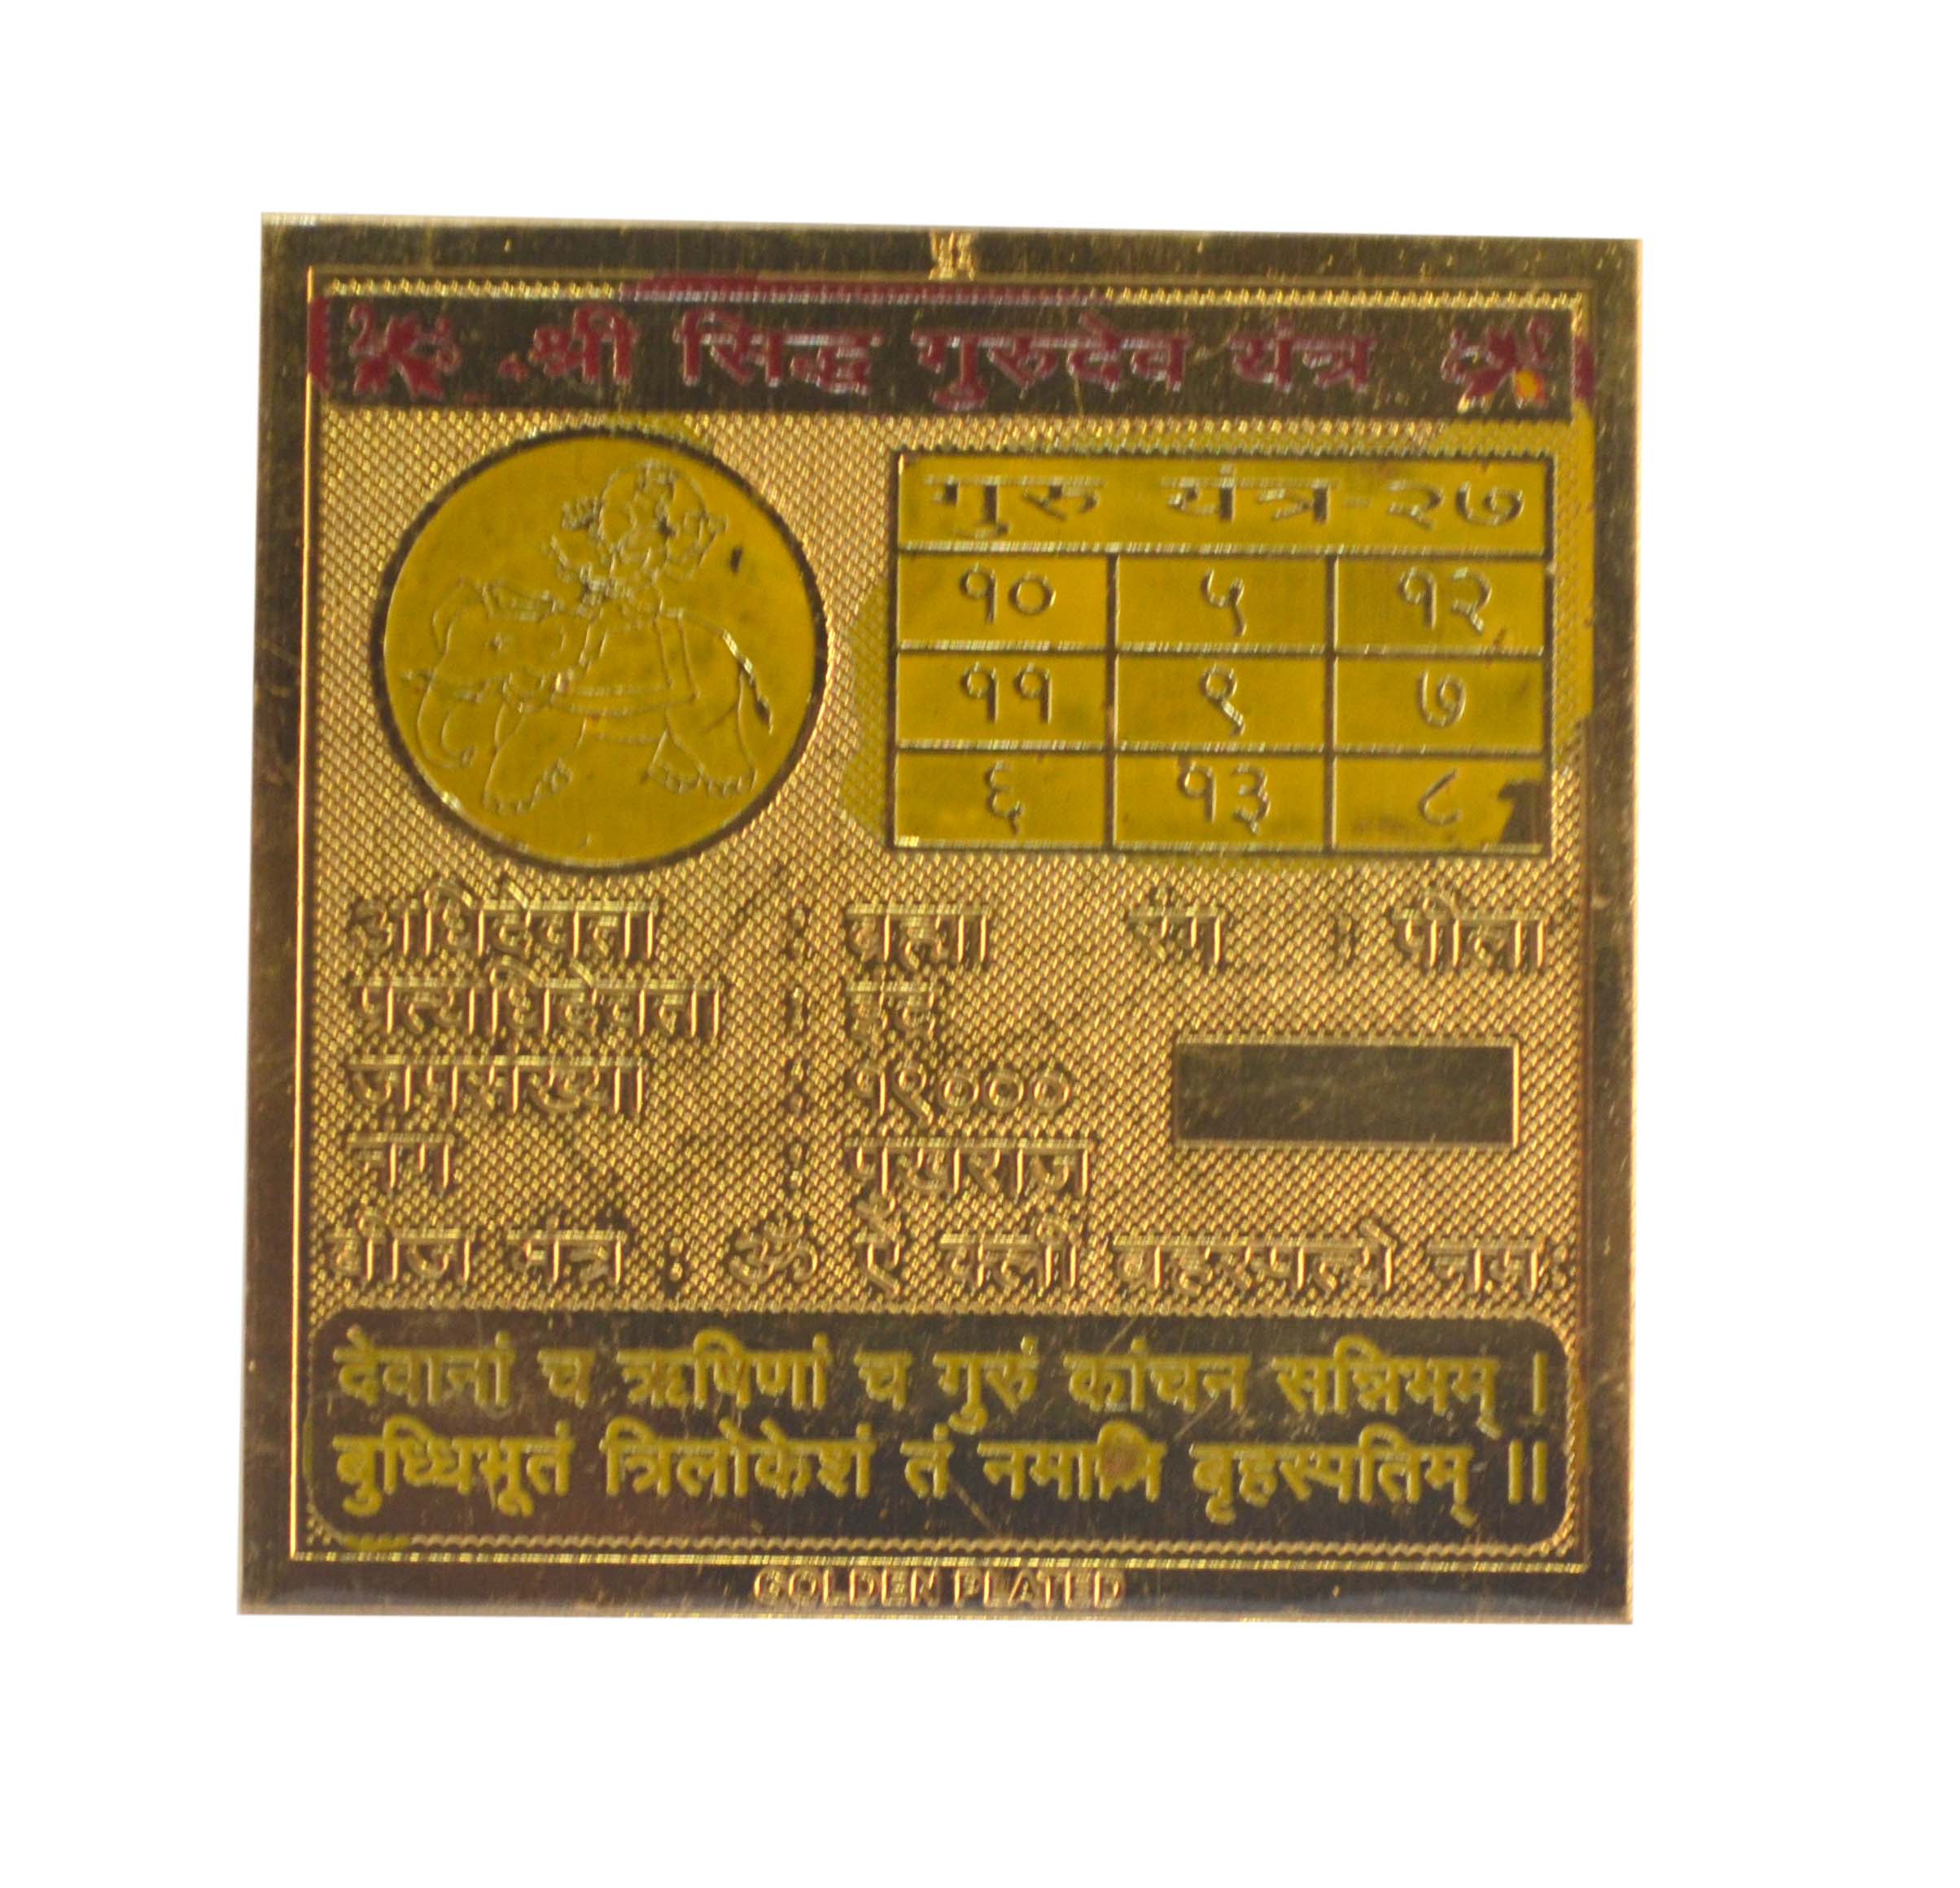 श्री सिद्ध गुरुदेव यंत्र
गुरु यंत्र-२७
१० ५ १२
११ ९ ७
६ १३ ८
अधिदेवता : ब्रह्मा रंग : पीला
प्रत्याधिदेवता : इंद्र
जपसंख्या : १९०००
नग : पुखराज
बीज मंत्र : ॐ ऐं क्लीं बृहस्पत्ये नमः
देवानां च ऋषिणां च गुरुं कांचन सन्निभम् ।
बुध्धिभूतं त्रिलोकेशं तं नमामि बृहस्पतिम् ॥
GOLDEN PLATED